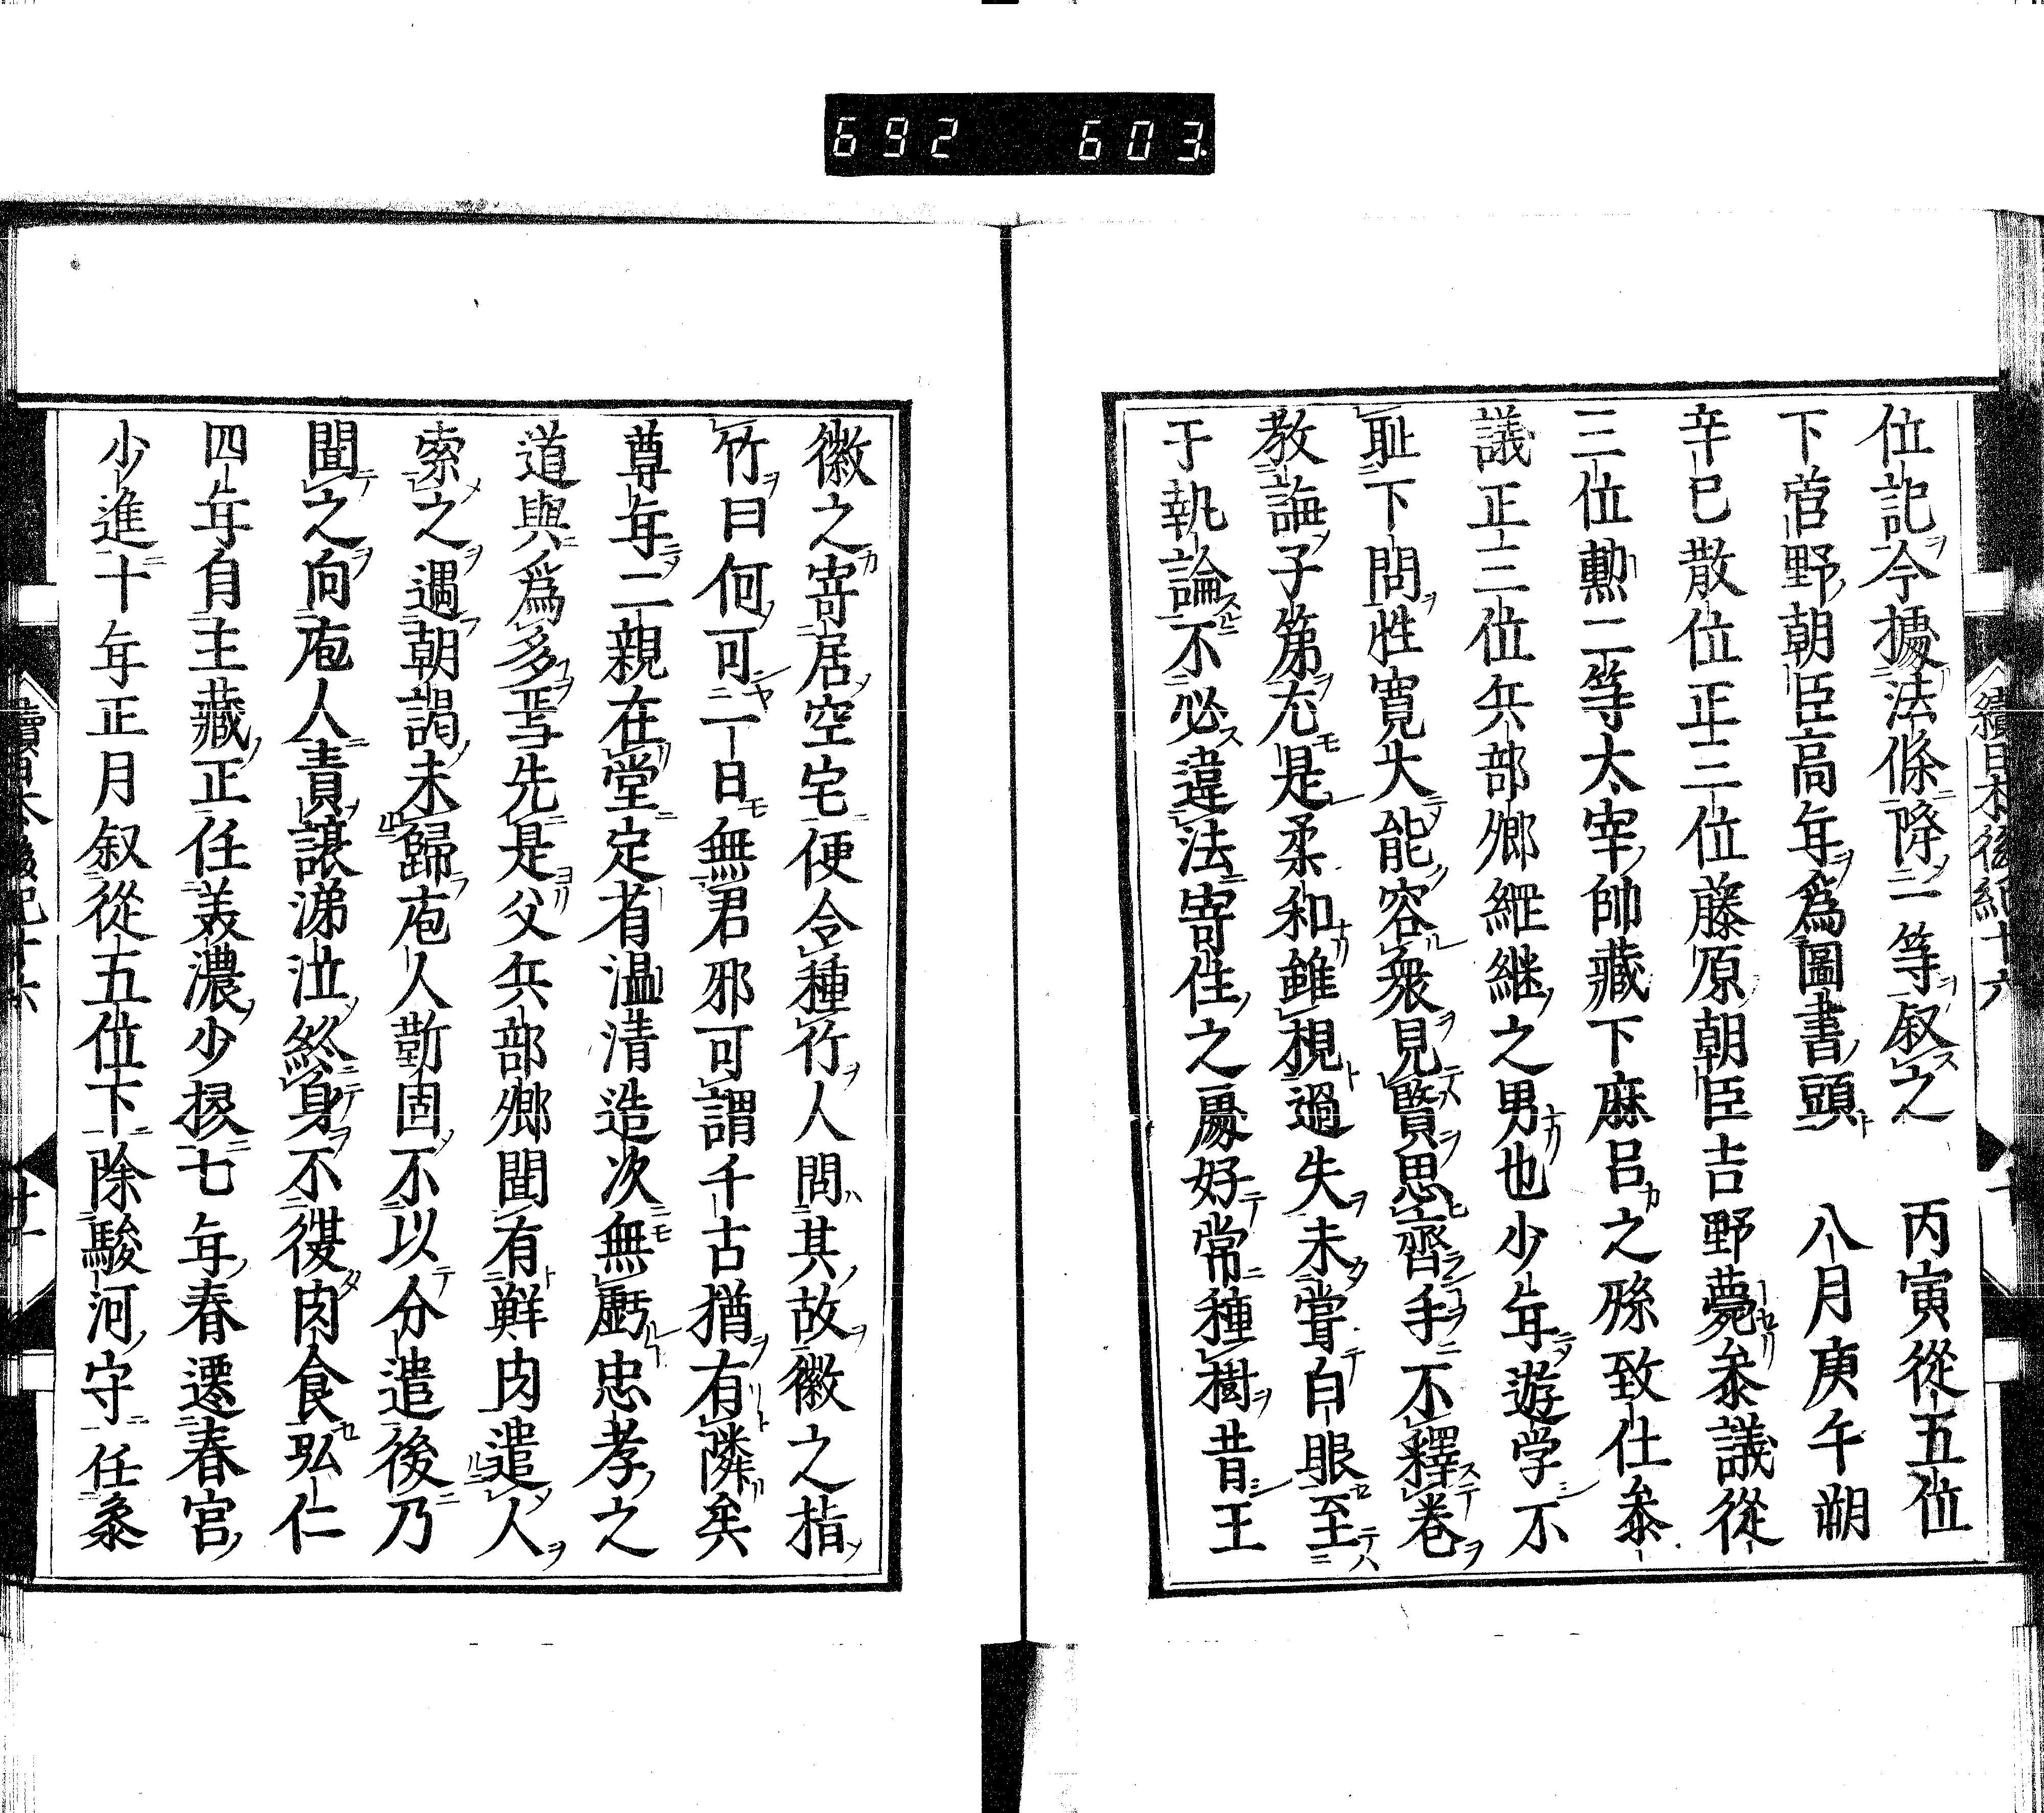 692 603
位記今據法條降二等叙之 丙寅從五位
下菅野朝臣高年爲圖書頭 八月庚午朔
辛巳散位正三位藤原朝臣吉野薨叅議從
三位勲二等太宰帥藏下麻呂之孫致仕叅
議正三位兵部卿綛継之男也少年遊学不
耻下問性寛大能容衆見賢思齊手不釋卷
教誨子第尤是柔和雖規過失未嘗白眼至
于執論不必違法寄住之處好常種樹昔王
徽之寄居空宅便令種竹人問其故徽之指
竹曰何可一日無君邪可謂千古猶有隣矣
尊年二親在堂定省温清造次無虧忠孝之
道與爲多焉先是父兵部卿聞有鮮肉遣人
索之遇朝謁未歸庖人勤固不以分遣後乃
聞之向庖人責譲涕泣終身不復肉食弘仁
四年自主藏正任美濃少掾七年春遷春宮
少進十年正月叙從五位下除駿河守任叅
續日本後紀十六
續日本後紀十六
十一